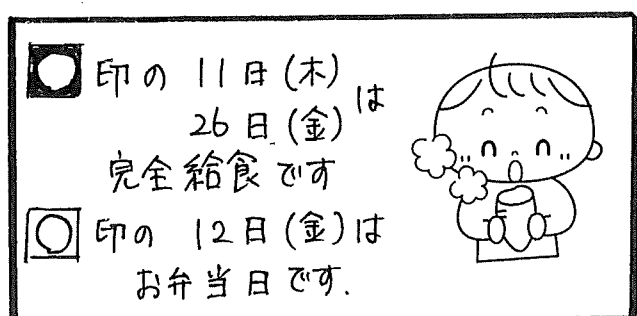 印の 11日(木)
26日(金)は
完全給食です
印の 12日(金)は
お弁当日です.